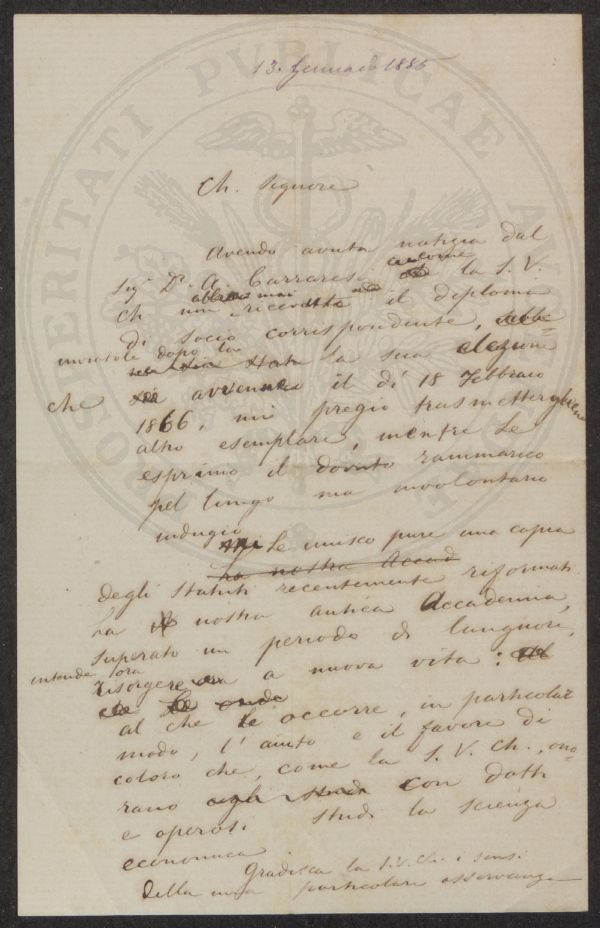 13. Gennaio 1885
Ch. Signore
Avendo avuta notizia dal
Sigr. Dr. A. Carraresi come la S. V.
Ch. non abbia mai ricevuto il diploma
di socio corrispondente,
la sua elezione
che avvenne il dì 18 Febbraio
1866, mi pregio trasmettergliene
altro esemplare, mentre Le
esprimo il dovuto rammarico
pel lungo ma involontario
indugio.
Le unisco pure una copia
ra nostra Accad
degli Statuti recentemente riformati
La nostra antica Accademia,
superato un periodo di languore,
intende ora
risorgere a nuova vita:
al che le occorre, in particolar
modo, l'aiuto e il favore di
coloro che, come la S. V. Ch., ono-
rano con dotti
e operosi studi la scienza
economica
Gradisca la S. V. Ch. i sensi
della mia particolare osservanza
MERITATI PVBLICAE